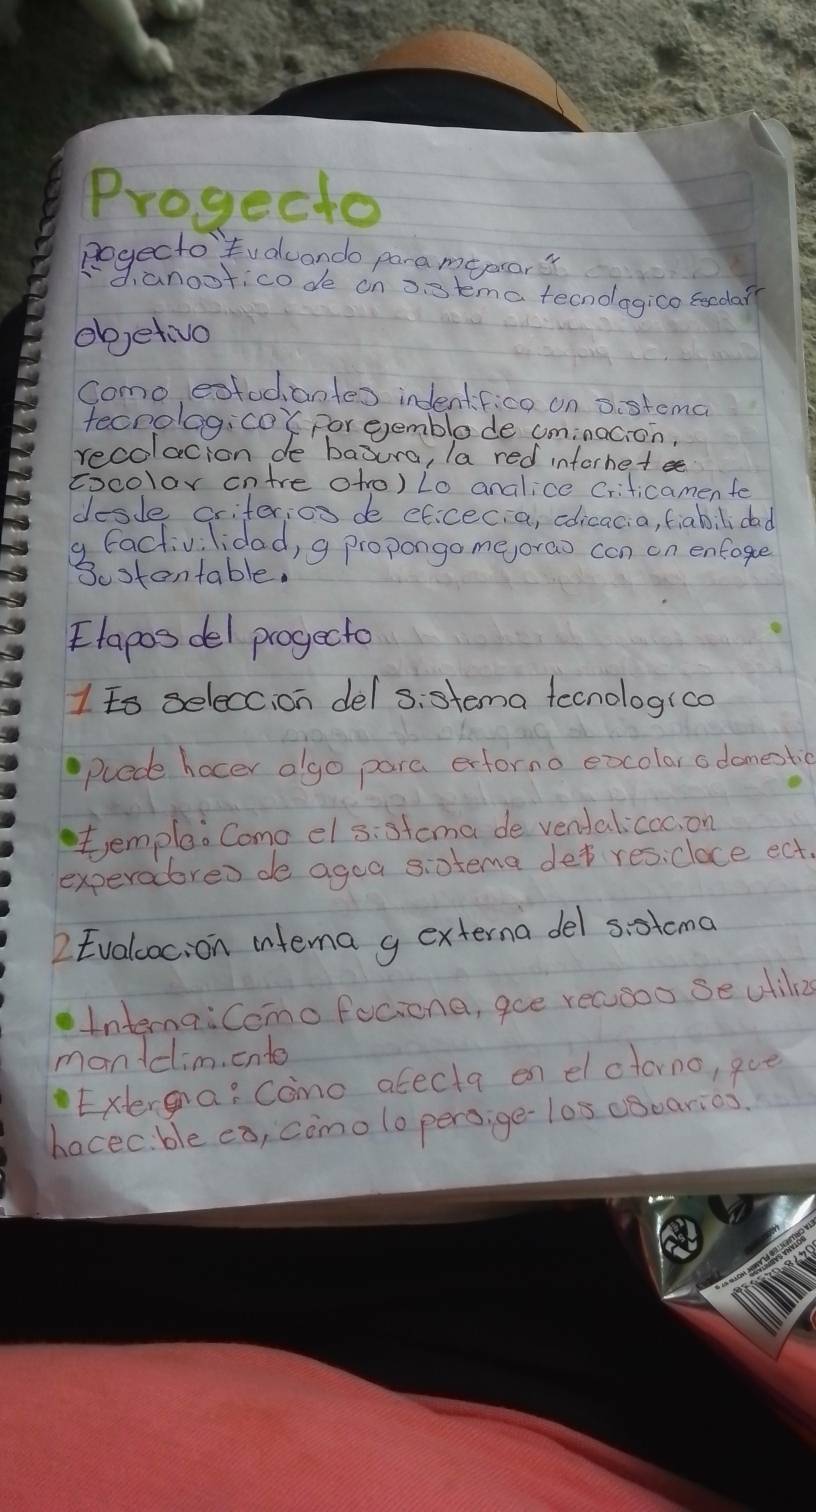 Progecto
Pogecto "Evaluando para mejorar"
"dianostico de un sistema tecnologico Escolar"
objetivo
Como, estudiantes indentifico un sistema
tecnologico (por ejemblo de uminacion,
recolacion de basura, la red internet
Escolar entre otro) Lo analice criticamente
desde criterios de eficecia, edicacia, fiabilidad
y factivilidad, y propongo mejoras con un enfoqe
Sustentable.
Etapas del progecto
1 Es seleccion del sistema tecnologico
• puede hacer algo para entorno escolar o domestic
• Ejemplo: Como el sistema de ventalicacion
experadores de agua sistema del resiclace ect.
2 Evaluacion interna y externa del sistema
• Interna: Como fuciona, que recusos se utiliza
mantdimiento
• Externa: Como afecta en el etorno, que
hacecible es, como lo persige los usuarios.